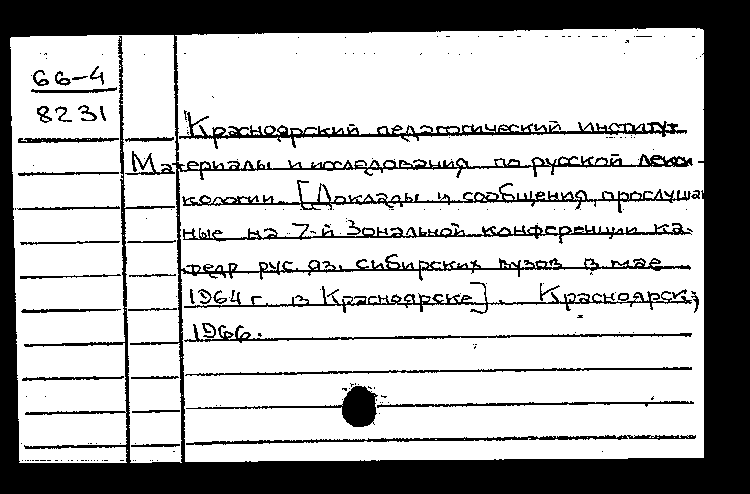 66-4
8231
Красноярский педагогический институт
Материалы и исследования по русской лекси-
кологии. [Доклады и сообщения, прослушан
ные на 7-й Зональной конференции ка-
федр рус. яз. сибирских вузов в мае
1964 г. в Красноярске]. Красноярск,
1966.